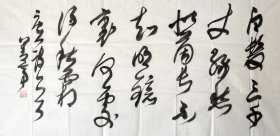 白發三千
丈緣愁
似個長不
知明鏡
裏何處
得秋霜